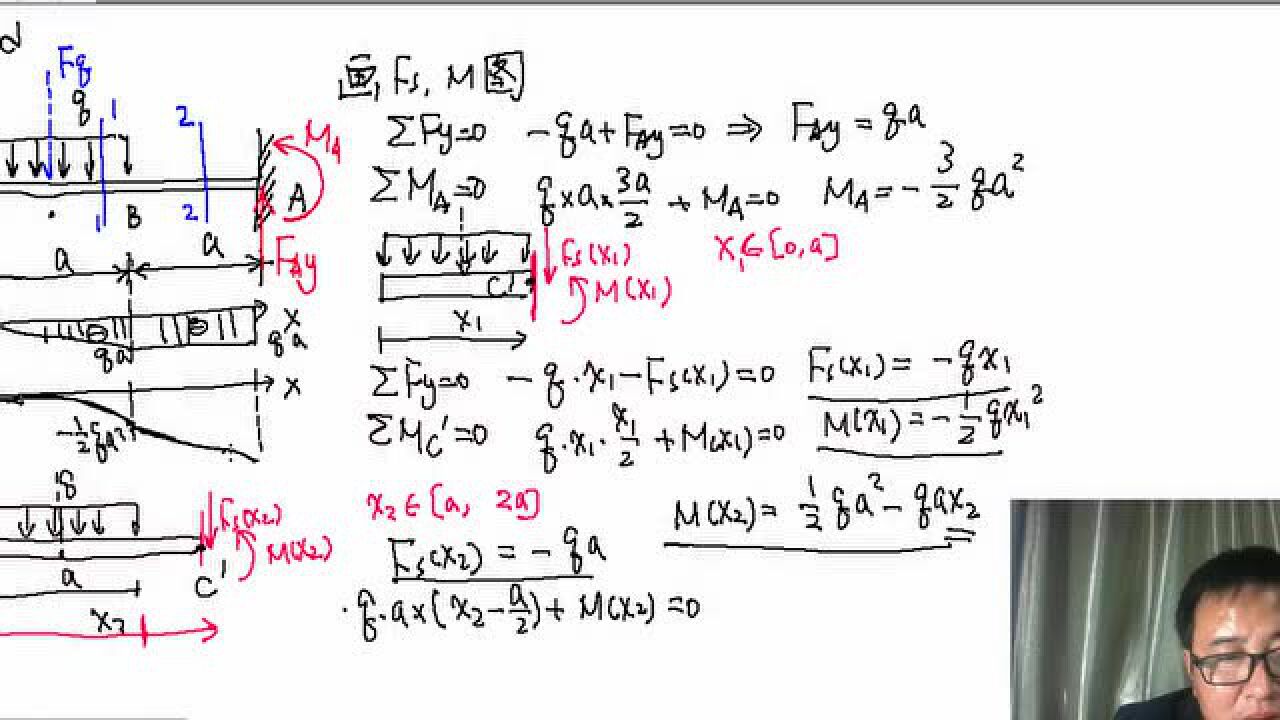 d
Fq
q 1
2
M_A
1 B 2 A
a a F_Ay
⊖ ⊖ x
qa qa
x
-1/2qa²
q
Fs(x2)
M(x2)
a C'
x2
画 Fs, M 图
ΣFy=0 -qa+F_Ay=0 ⇒ F_Ay=qa
ΣM_A=0 q×a×3a/2+M_A=0 M_A=-3/2qa²
Fs(x1) x1∈[0,a]
C' M(x1)
x1
ΣFy=0 -q·x1-Fs(x1)=0 Fs(x1)=-qx1
ΣMc'=0 q·x1·x1/2+M(x1)=0 M(x1)=-1/2qx1²
x2∈[a, 2a] M(x2)=1/2qa²-qax2
Fs(x2)=-qa
·q·a×(x2-a/2)+M(x2)=0